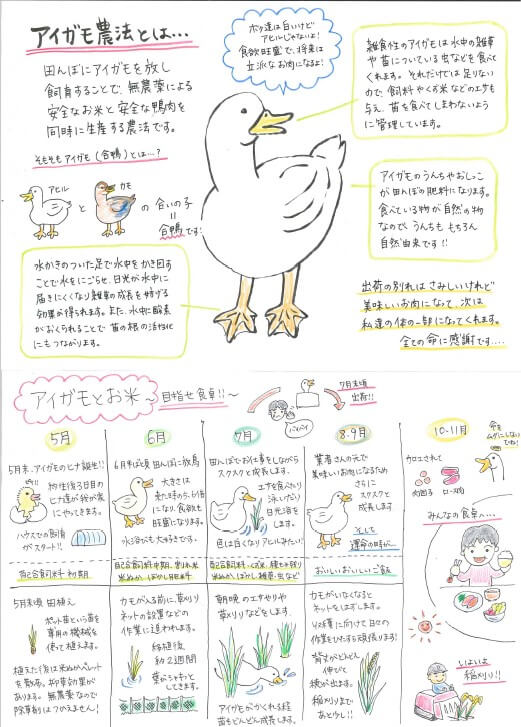 アイガモ農法とは...
田んぼにアイガモを放し
飼育することで、無農薬による
安全なお米と安全な鴨肉を
同時に生産する農法です。
そもそもアイガモ(合鴨)とは...?
アヒル
と
カモ
の合いの子
=
合鴨です!
ボク達は白いけど
アヒルじゃないよ!
食欲旺盛で、将来は
立派なお肉になるよ!
雑食性のアイガモは水中の雑草
や苗についている虫などを食べ
てくれます。それだけでは足りない
ので、飼料やくず米などのエサも
与え、苗を食べてしまわないよう
に管理しています。
アイガモのうんちやおしっこ
が田んぼの肥料になります。
食べている物が自然の物
なので、うんちも もちろん
自然由来です!!
水かきのついた足で水中をかき回す
ことで水をにごらせ、日光が水中に
届きにくくなり雑草の成長を妨げる
効果が得られます。また、水中に酸素
がおくられることで苗の根の活性化
にもつながります。
出荷の別れはさみしいけれど
美味しいお肉になって、次は
私達の体の一部になってくれます。
全ての命に感謝です....
アイガモとお米~目指せ食卓!!~
バイバイ
7月末頃
出荷!!
5月
5月末、アイガモのヒナ誕生!!
約生後3日目の
ヒナ達が我が家
にやってきます。
ハウスでの飼育
がスタート!!
配合飼料 初期
5月末頃 田植え
ポット苗という苗を
専用の機械を
使って植えます。
植えた後は米ぬかペレット
を散布。抑草効果が
あります。無農薬なので
除草剤はつかえません!
6月
6月半ば頃 田んぼに放鳥
大きさは
来た時の5、6倍
になり、食欲も
旺盛になります。
水浴びも大好きです。
配合飼料中期、割れ米
米ぬか、ぼかし肥料
カモが入る前に、草刈り
ネットの設置などの
作業に追われます。
田植後
約2週間
苗がシャキッと
してきます。
7月
田んぼでお仕事をしながら
スクスクと成長します。
エサを食べたり
泳いだり
日光浴を
します。
色は白くなりアヒルみたい!!
配合飼料、くず米、糖セキ割り
米ぬか、ぼかし、雑草、虫など
朝晩のエサやりや
草刈りなどをします。
アイガモがかくれる程
苗もどんどん成長します。
8.9月
業者さんの元で
美味しいお肉になるため
さらに
スクスクと
成長します
そして
運命の時が...
おいしいおいしいご飯
カモがいなくなると
ネットをはずします。
収穫に向けて日々の
作業をひたすら頑張ります!
背丈がどんどん
伸びて
穂が出ます。
稲刈りまで
あと少し!!
10.11月
加工されて
肉団子
ロース肉
命を
ムダにしないで
ね!
みんなの食卓へ...
いよいよ
稲刈り!!